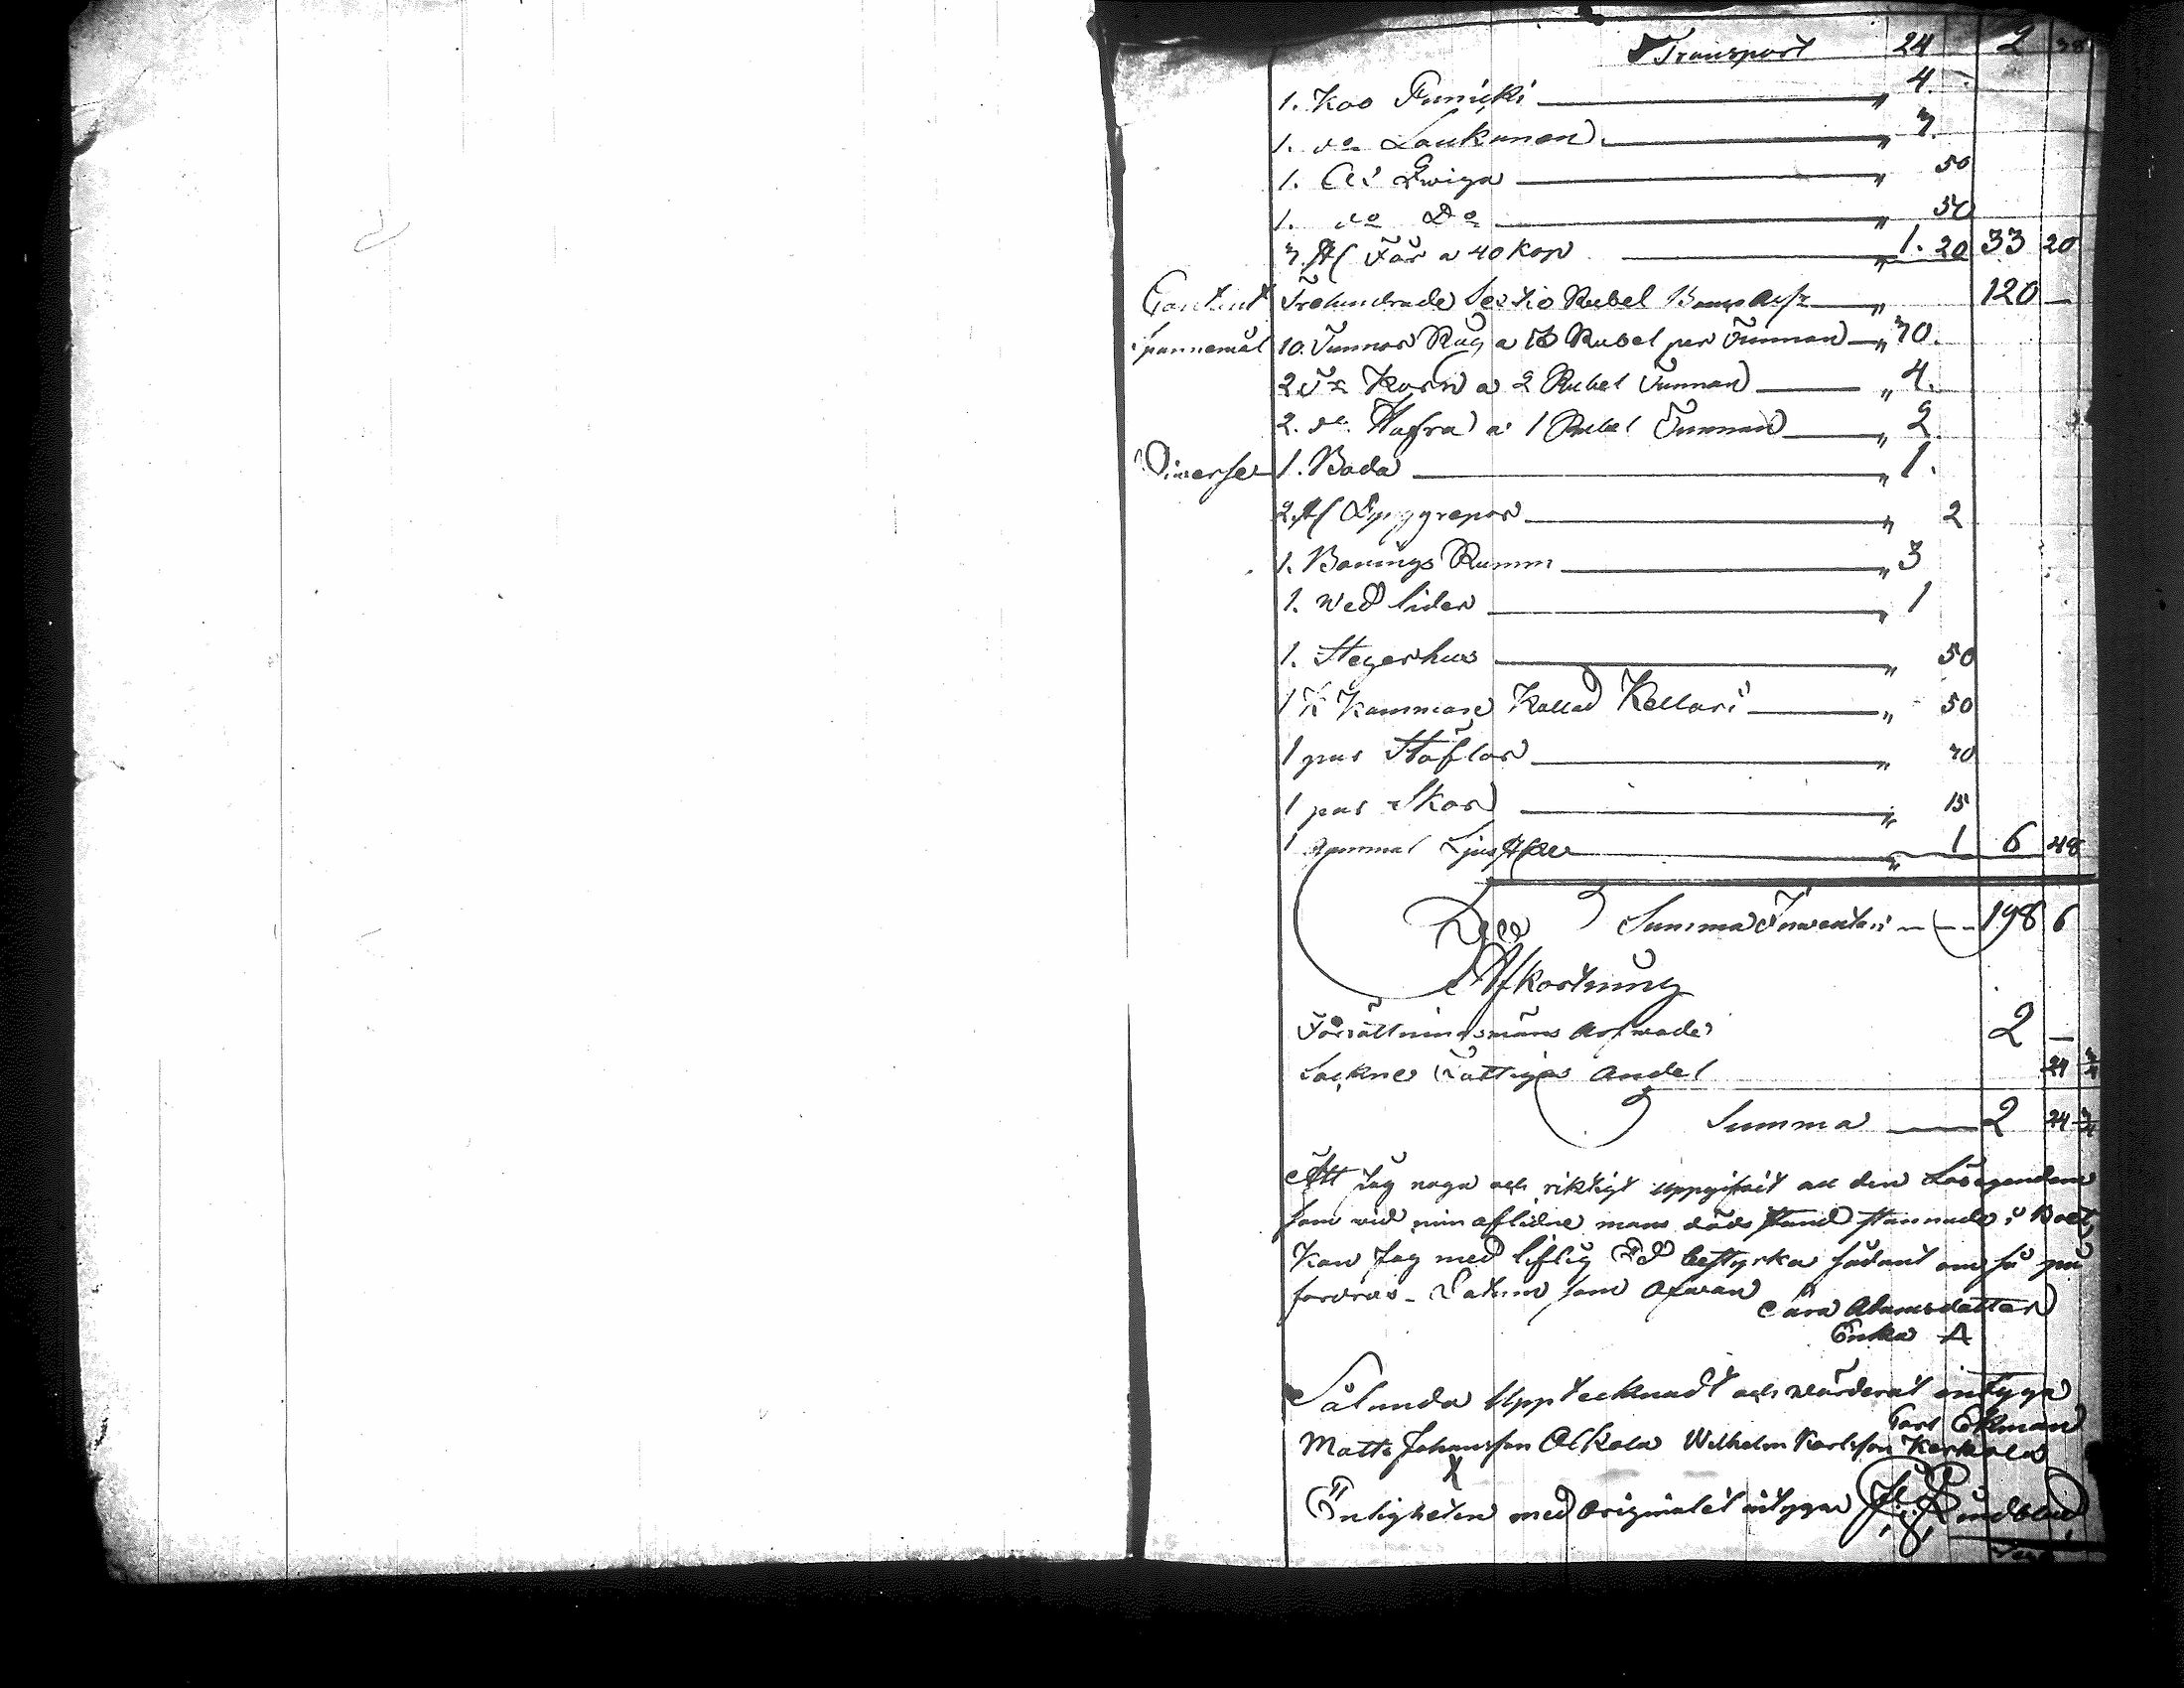 Transport 24 2 38
1. Koo Punicki " 4.
1. do Laukunen " 7.
1. Qwiga " 50
1. do Do " 50
3. st. Får a 40 kop " 1. 20 33 20
Contant Trehundrade Sextio Rubel Banco Ass " 120 —
Spannemål 10. Tunnor Råg a 3 Rubel per Tunnan " 30.
2 Tr Korn a 2 Rubel Tunnan " 4.
2. do Hafra a 1 Rubel Tunnan " 2
Diverse 1. Boda " 1.
2. st " 2
1. Bonings Rumm " 3
1. Wed lider " 1
1. Stegerhus " 50
1 K Kammare Kallad Kellari " 50
1 par Stöflor " 30
1 par Skor " 15
1 gammal " 1 6 48
Summa Inventarii 198 6
Afkortning
Förrättningsmäns Arfwode 2 —
Sockne Fattigas Andel 24 3/4
Summa 2 24 3/4
Att Jag noga och riktigt uppgifwit all den Lösegendom
som vid min aflidne mans döds stund stannade i Boet,
Kan Jag med liflig Ed bestyrka sådant om så på
fordras. Datum som ofwan
Cara Adamsdotter
Enka
Sålunda Upptecknadt och wärderat intyga
Carl Ekman
Matts Johansson Olkola Wilhelm Karlsson Kerkola
X
Enligheten med Originalet intygar Lundblad